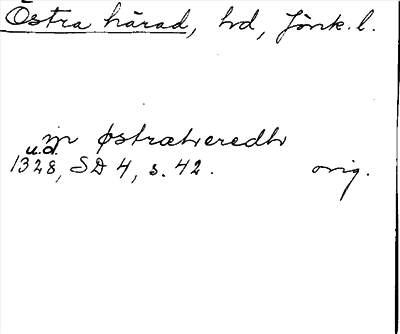 Östra härad, hd, Jönk. l.
jn østræheredh
u.d.
1328, SD 4, s. 42. orig.